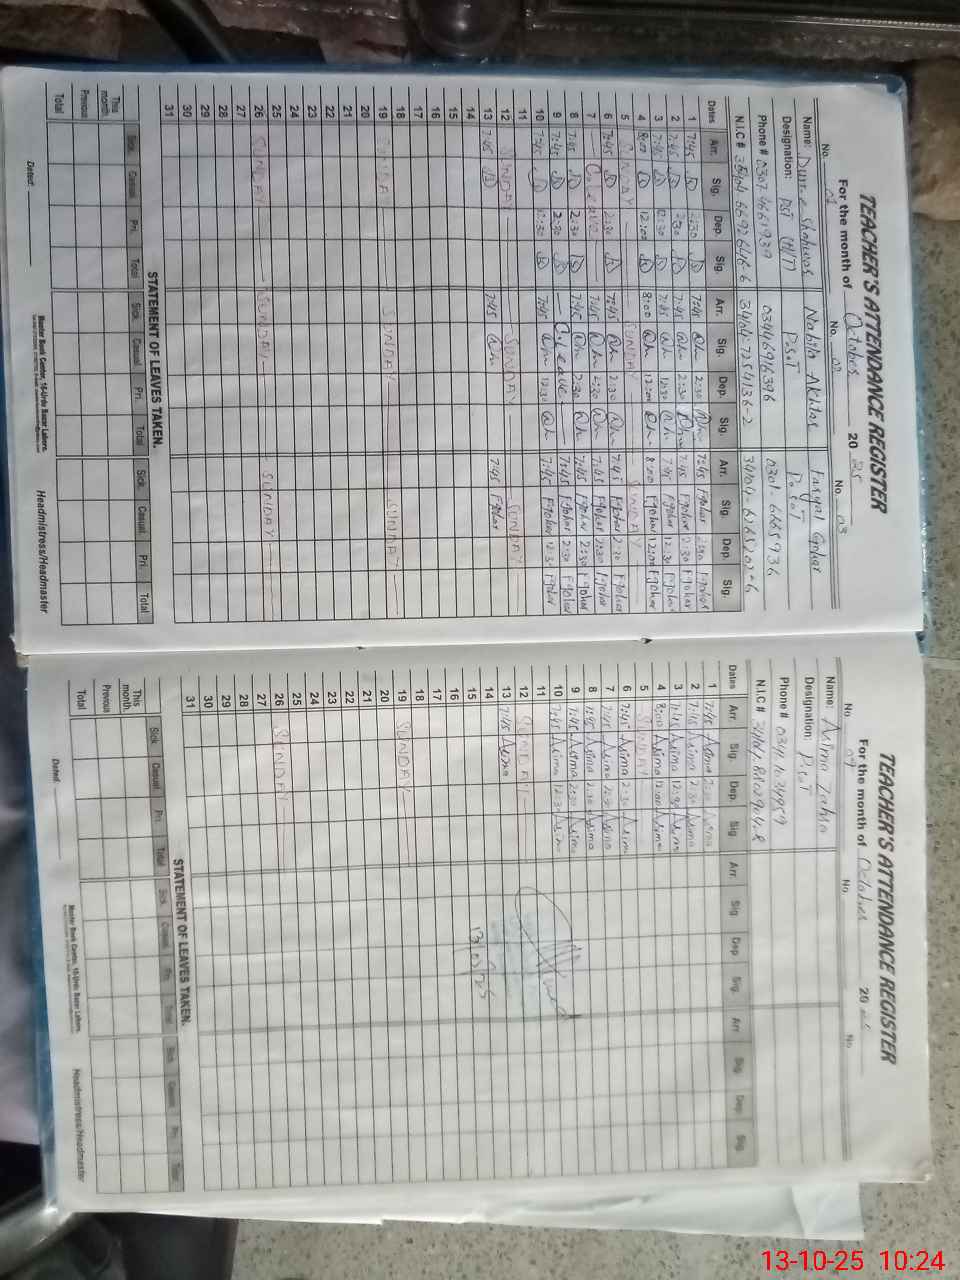 TEACHER'S ATTENDANCE REGISTER
For the month of October 20 25
No. 01 No. 02 No. 03
Name: Durre Shahwar Nabila Akhtar Faryal Gohar
Designation: PST P.S.T P.S.T
Phone # 0307 4661939 0344696396
N.I.C #
Dates Arr. Sig. Dep. Sig. Arr. Sig. Dep. Sig. Arr. Sig. Dep. Sig.
1 7:45 2:30 7:45 2:30 7:45 Fgohar 2:30 Fgohar
2 7:45 2:30 7:45 2:30 7:45 Fgohar 2:30 Fgohar
3 7:45 12:30 7:45 12:30 7:45 Fgohar 12:30 Fgohar
4 8:00 12:00 8:00 12:00 8:00 Fgohar 12:00 Fgohar
5 SUNDAY SUNDAY SUNDAY
6 7:45 2:30 7:45 2:30 7:45 Fgohar 2:30 Fgohar
7 C.Leave 7:45 2:30 7:45 Fgohar 2:30 Fgohar
8 7:45 2:30 7:45 2:30 7:45 Fgohar 2:30 Fgohar
9 7:45 2:30 C.Leave 7:45 Fgohar 2:30 Fgohar
10 7:45 12:30 7:45 12:30 7:45 Fgohar 12:30 Fgohar
11
12 SUNDAY SUNDAY SUNDAY
13 7:45 7:45 7:45 Fgohar
14
15
16
17
18
19 SUNDAY SUNDAY SUNDAY
20
21
22
23
24
25
26 SUNDAY SUNDAY SUNDAY
27
28
29
30
31
STATEMENT OF LEAVES TAKEN.
Sick. Casual Pri. Total Sick. Casual Pri. Total Sick. Casual Pri. Total
This month
Previous
Total
Dated: Master Book Center, 16-Urdu Bazar Lahore. Headmistress/Headmaster
TEACHER'S ATTENDANCE REGISTER
For the month of October 20
No. No. No.
Name: Asma Zahra
Designation: P.S.T
Phone #
N.I.C #
Dates Arr. Sig. Dep. Sig. Arr. Sig. Dep. Sig. Arr. Sig. Dep. Sig.
1 7:45 Asma 2:30 Asma
2 7:45 Asma 2:30 Asma
3 7:45 Asma 12:30 Asma
4 8:00 Asma 12:00 Asma
5 SUNDAY
6 7:45 Asma 2:30 Asma
7 7:45 Asma 2:30 Asma
8 7:45 Asma 2:30 Asma
9 7:45 Asma 2:30 Asma
10 7:45 Asma 12:30 Asma
11
12 SUNDAY
13 7:45 Asma
14
15
16
17
18
19 SUNDAY
20
21
22
23
24
25
26 SUNDAY
27
28
29
30
31
STATEMENT OF LEAVES TAKEN.
Sick Casual Pri. Total Sick Casual Pri. Total Sick Casual Pri. Total
This month
Previous
Total
Dated: Master Book Center, 16-Urdu Bazar Lahore. Headmistress/Headmaster
13-10-25 10:24